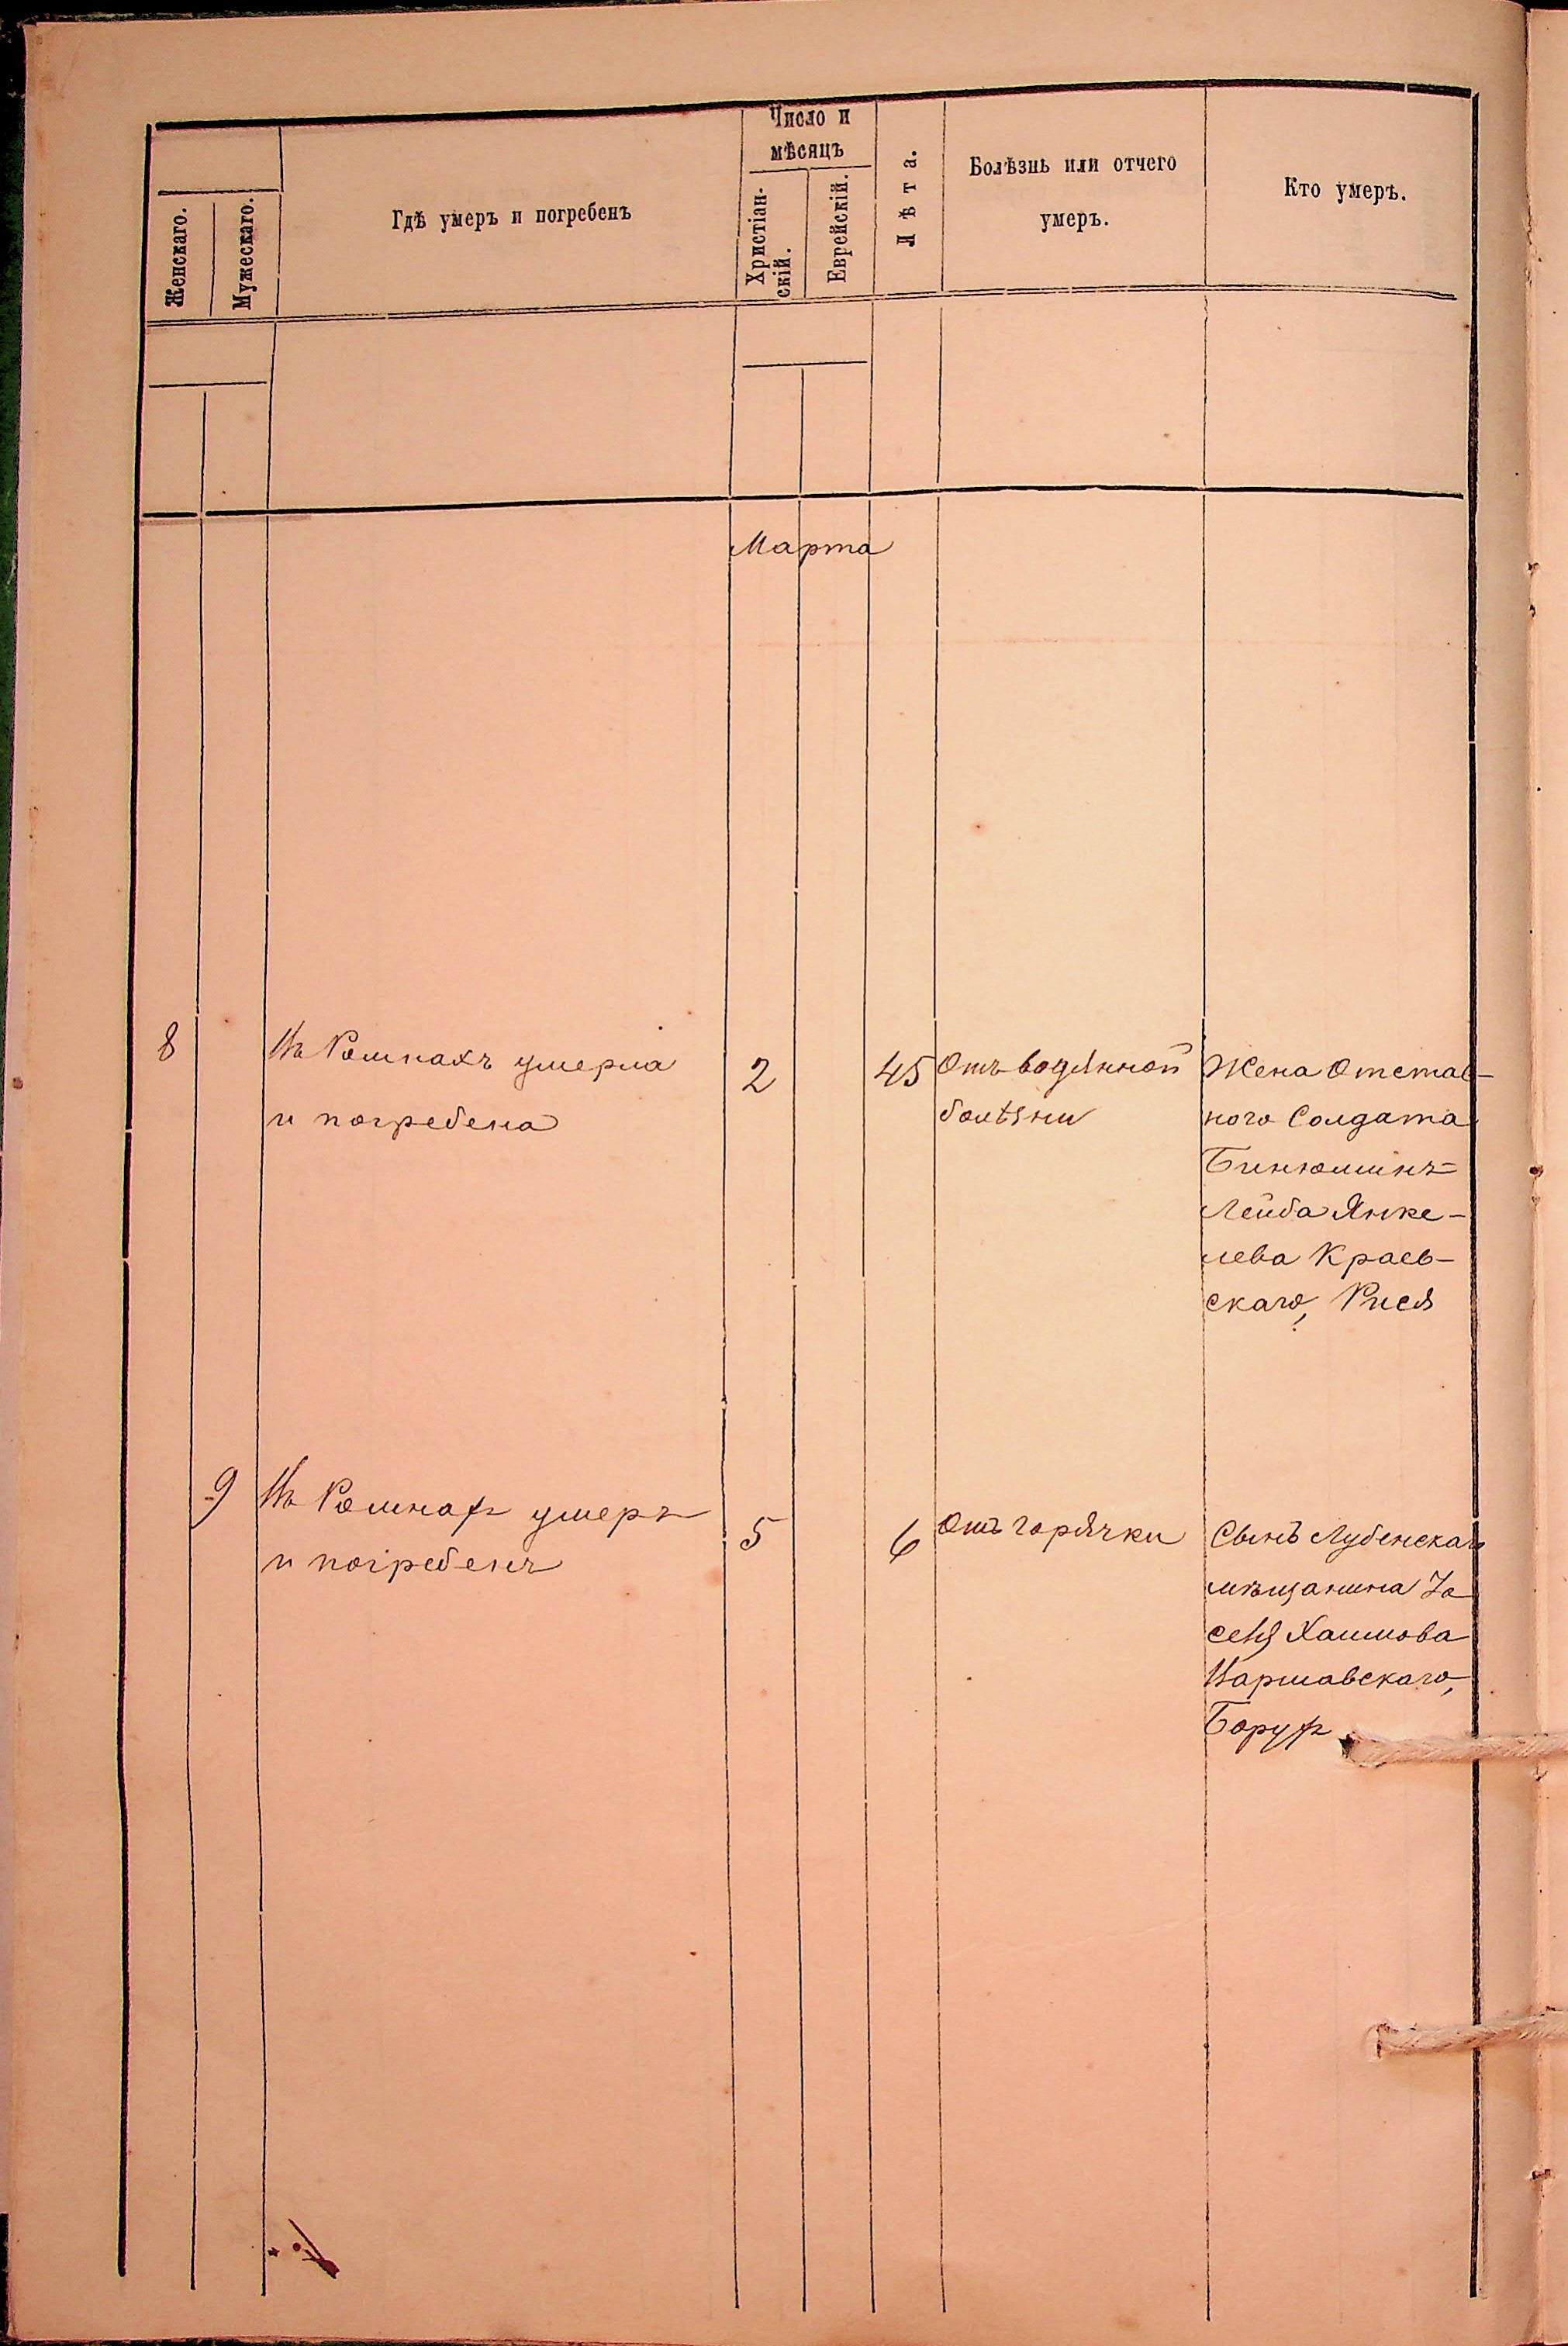 Женскаго.
Мужескаго.
Гдѣ умеръ и погребенъ
Число и
мѣсяцъ
Христіан-
скій.
Еврейскій.
Лѣта.
Болѣзнь или отчего
умеръ.
Кто умеръ.
Марта
8
Въ Ромнахъ умерла
и погребена
2
45
Отъ водянной
болѣзни
Жена Отстав-
ного Солдата
Бинюминъ-
Лейба Янке-
лева Краев-
скаго, Рися
9
Въ Ромнахъ умеръ
и погребенъ
5
6
Отъ горячки
Сынъ Лубенскаго
мѣщанина
Хаимова
Варшавскаго,
Борухъ